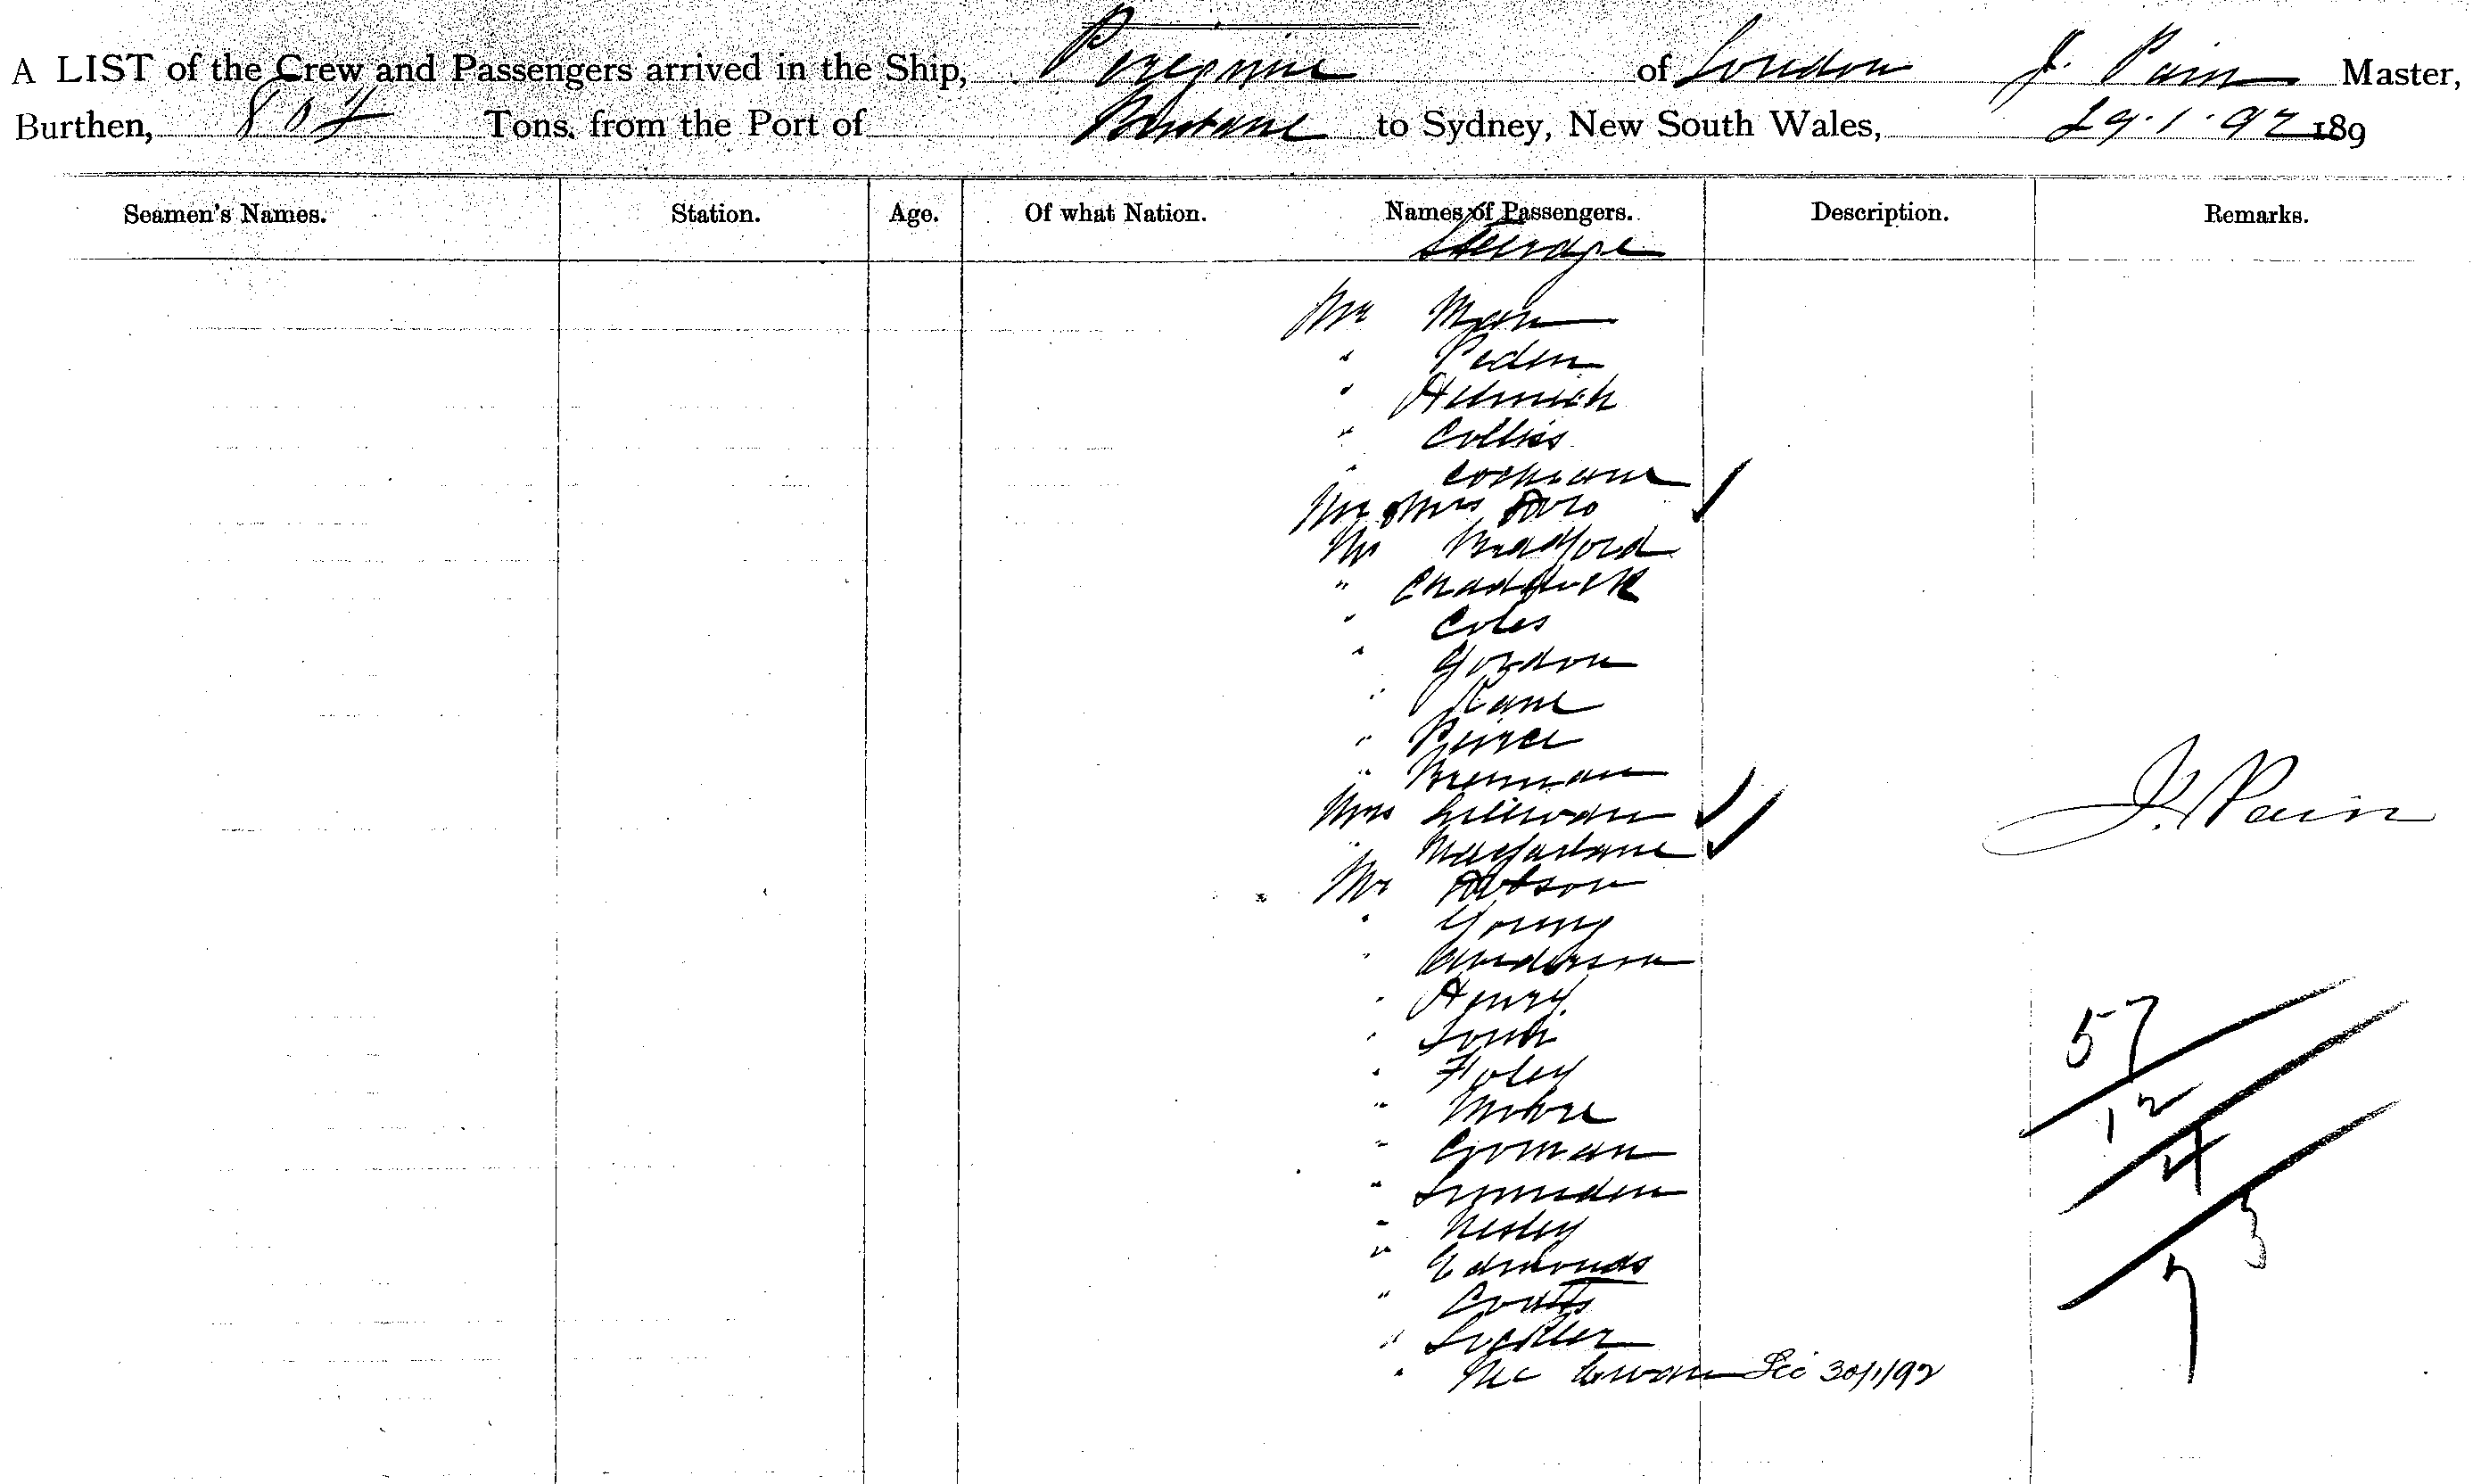 A LIST of the Crew and Passengers arrived in the Ship, Peregrine of London J. Pain Master,
Burthen, Tons, from the Port of Brisbane to Sydney, New South Wales, 29.1.92 189
Seamen's Names. Station. Age. Of what Nation. Names of Passengers. Description. Remarks.
Steerage
Mr
" Peden
"
" Collins
" Cochrane
Mr & Mrs
Mr Bradford
" Chadwick
" Coles
" Gordon
" Kane
" Peirce
" Brennan
Mrs Sullivan
" Macfarlane
J. Pain
Mr Hobson
" Young
" Anderson
" Henry
"
" Foley
" Moore
" Gorman
" Lumsden
" Nesley
" Edmonds
" Coutts
"
" Mc Ewan 30/1/92
57
12
4
3
7